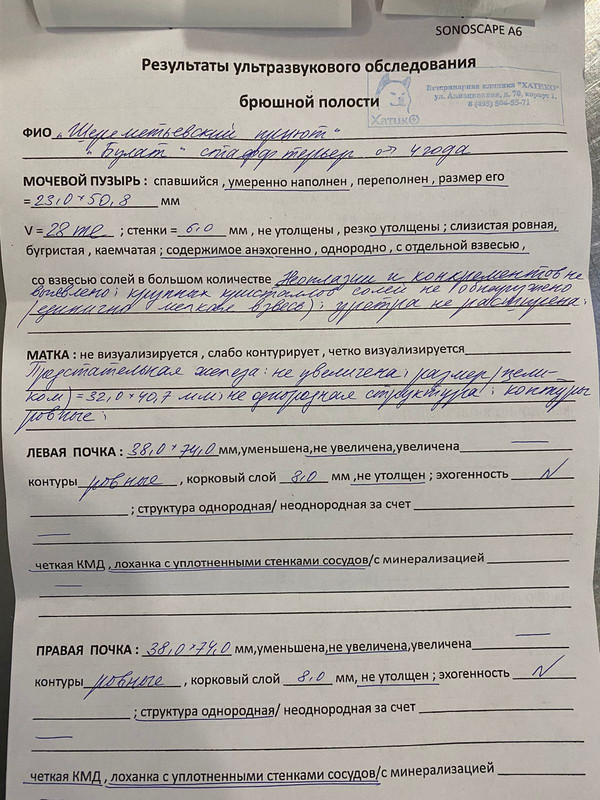 SONOSCAPE A6
Результаты ультразвукового обследования
брюшной полости
Ветеринарная клиника "ХАТИКО"
8 (495) 504-55-71
ХатикО
ФИО „Шереметьевский приют"
„Булат" стафф терьер ♂ 4 года
МОЧЕВОЙ ПУЗЫРЬ : спавшийся , умеренно наполнен , переполнен , размер его
= 23,0 × 50,8 мм
V = 28 ; стенки = 6,0 мм , не утолщены , резко утолщены ; слизистая ровная,
бугристая , каемчатая ; содержимое анэхогенно , однородно , с отдельной взвесью ,
со взвесью солей в большом количестве Неоплазии и конкрементов не
выявлено; крупных кристаллов солей не обнаружено
(единично мелкая взвесь); уретра не расширена;
МАТКА : не визуализируется , слабо контурирует , четко визуализируется
Предстательная железа: не увеличена; размер
ком) = 32,0 × 40,7 мм; не однородная структура; контуры
ровные;
ЛЕВАЯ ПОЧКА : 38,0 × 74,0 мм,уменьшена,не увеличена,увеличена
контуры ровные , корковый слой 8,0 мм ,не утолщен ; эхогенность N
; структура однородная/ неоднородная за счет
четкая КМД , лоханка с уплотненными стенками сосудов/с минерализацией
ПРАВАЯ ПОЧКА : 38,0 × 74,0 мм,уменьшена,не увеличена,увеличена
контуры ровные , корковый слой 8,0 мм, не утолщен ; эхогенность N
; структура однородная/ неоднородная за счет
четкая КМД , лоханка с уплотненными стенками сосудов/с минерализацией